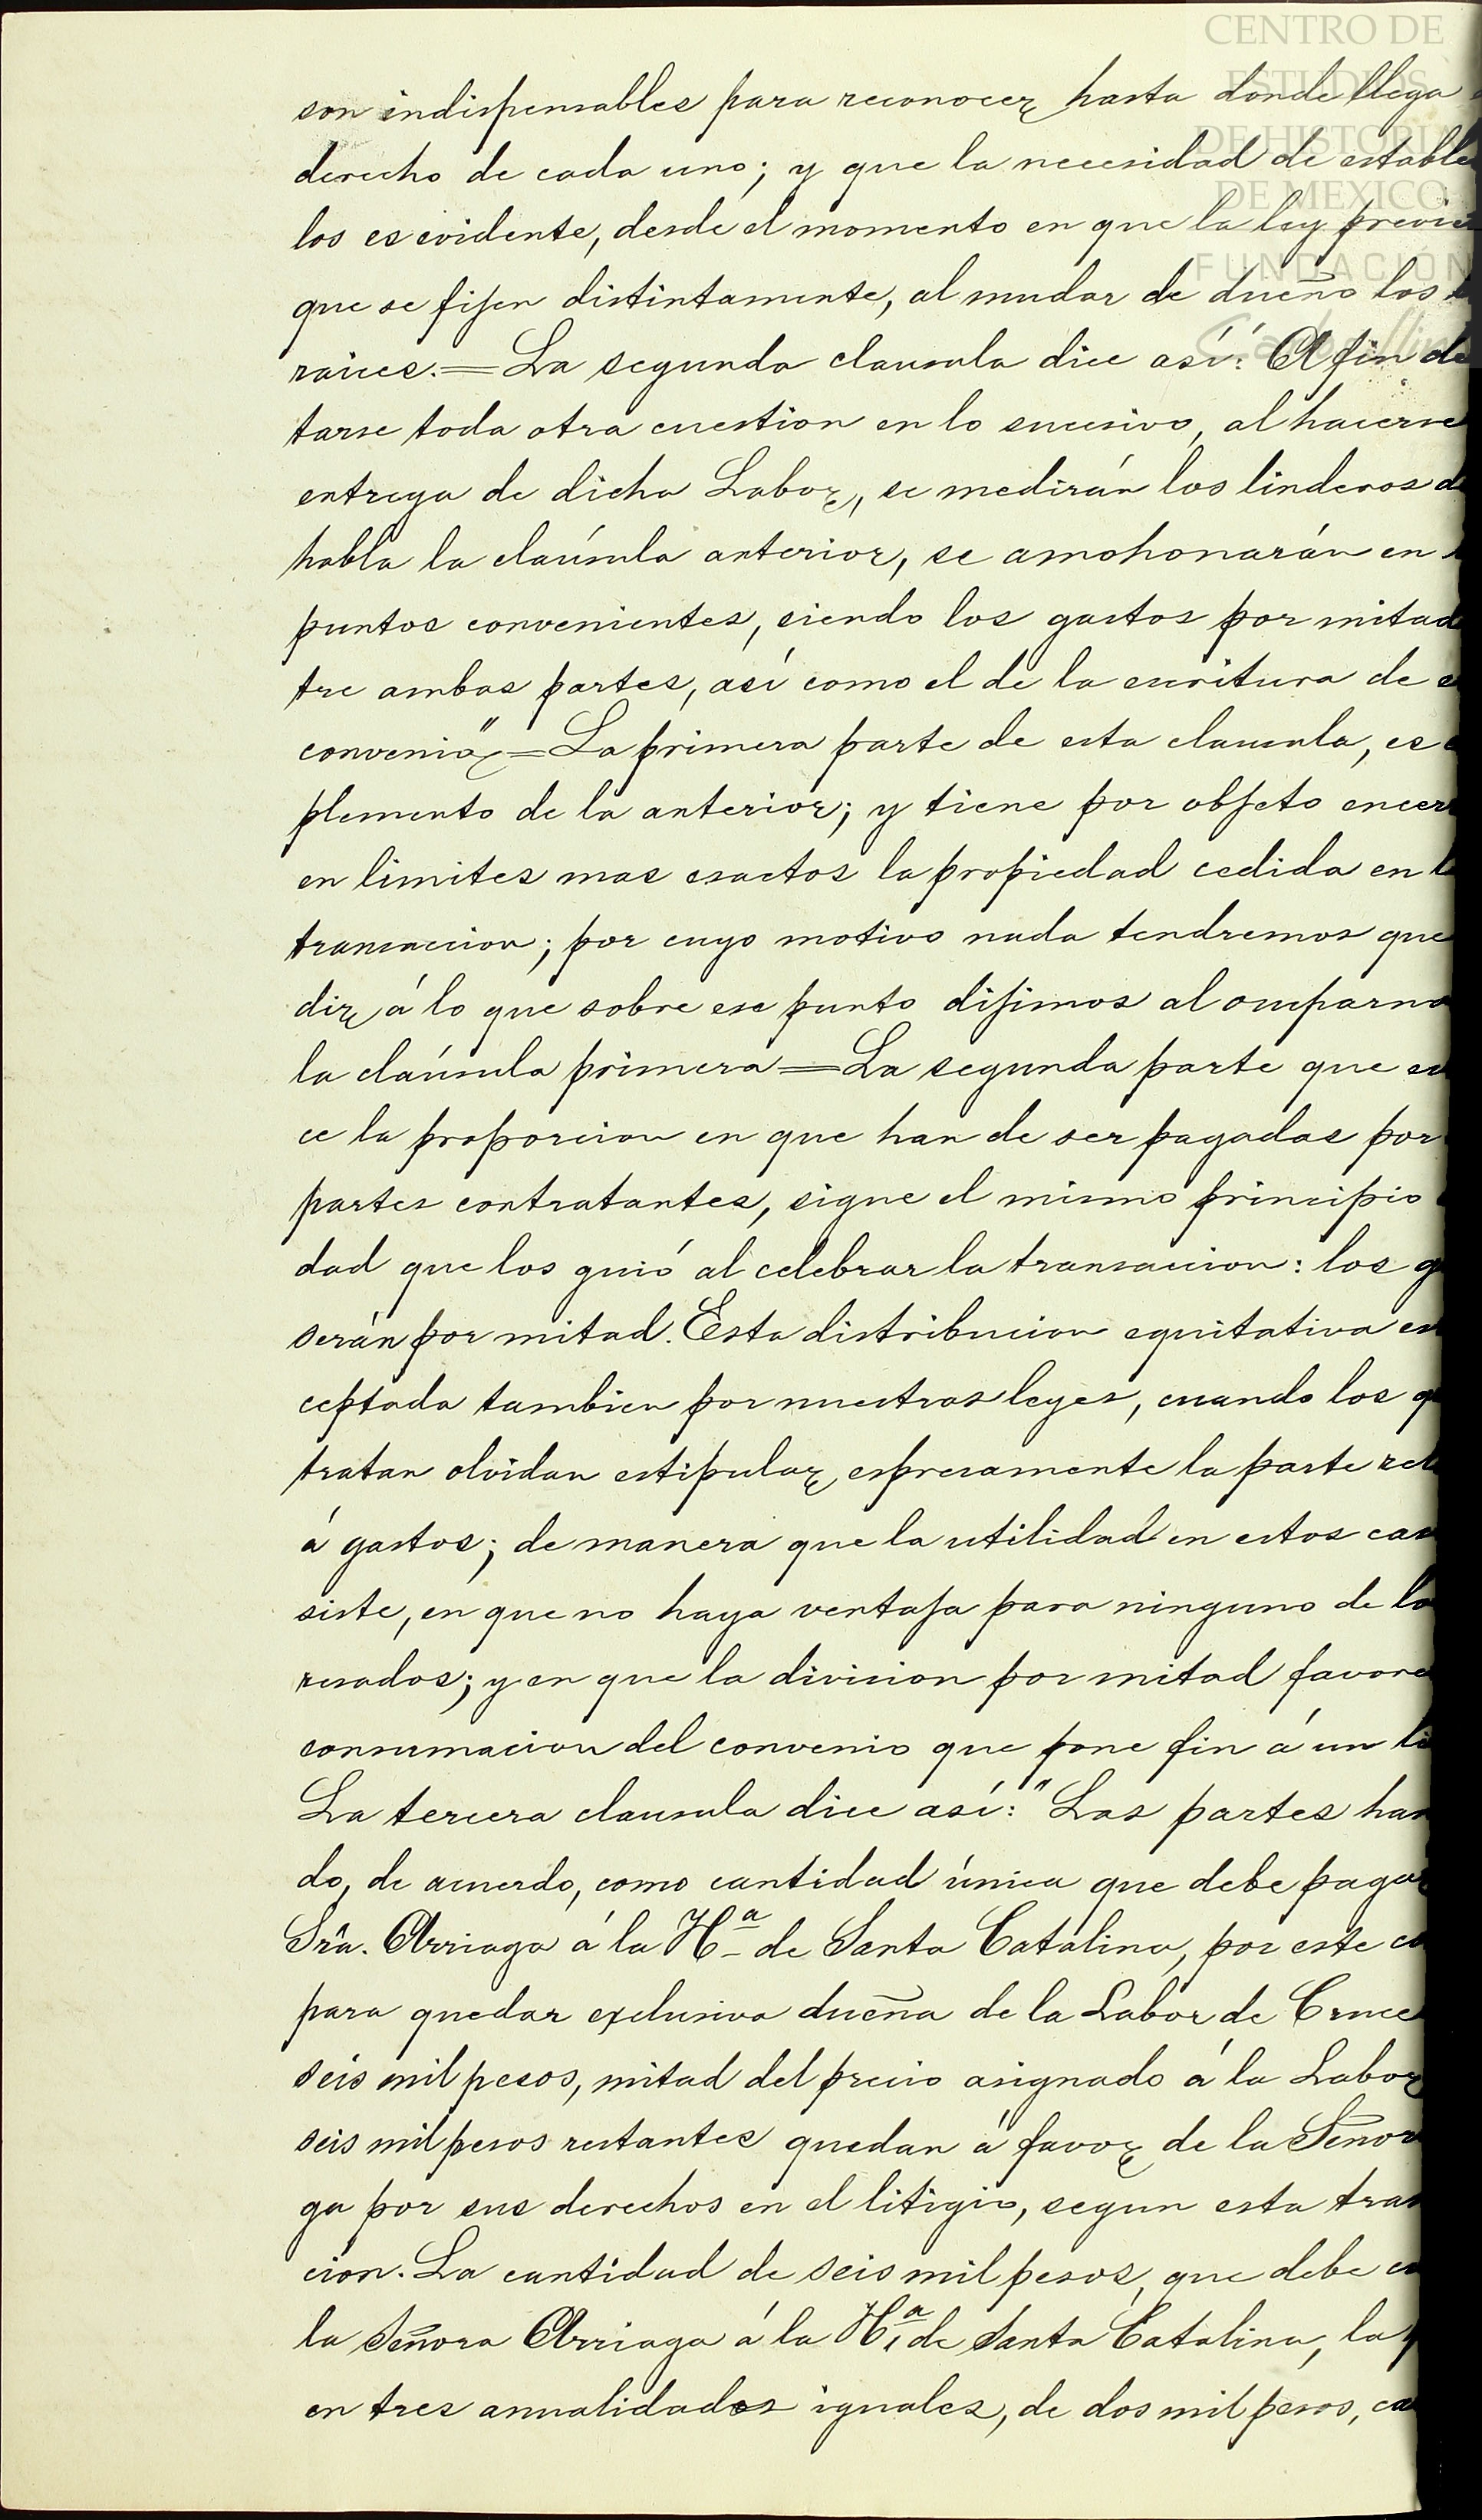 CENTRO DE
ESTUDIOS
DE HISTORIA
DE MEXICO
FUNDACIÓN
son indispensables para reconocer hasta donde llega
derecho de cada uno; y que la necesidad de estable
los es evidente, desde el momento en que la ley previe
que se fijen distintamente, al mudar de dueño los
raices.=La segunda clausula dice así: A fin de
tarse toda otra cuestion en lo sucesivo, al hacerse
entrega de dicha Labor, se medirán los linderos d
habla la claúsula anterior, se amohonarán en
puntos convenientes, siendo los gastos por mitad
tre ambas partes, así como el de la escritura de e
convenio"=La primera parte de esta clausula, es
plemento de la anterior; y tiene por objeto encer
en limites mas esactos la propiedad cedida en l
transaccion; por cuyo motivo nada tendremos que
dir á lo que sobre ese punto dijimos al ocuparno
la claúsula primera=La segunda parte que es
ce la proporcion en que han de ser pagadas por
partes contratantes, sigue el mismo principio
dad que los guió al celebrar la transaccion: los g
serán por mitad. Esta distribucion equitativa es
ceptada tambien por nuestras leyes, cuando los q
tratan olvidan estipular espresamente la parte rel
á gastos; de manera que la utilidad en estos cas
siste, en que no haya ventaja para ninguno de lo
resados; y en que la division por mitad favore
consumacion del convenio que pone fin á un li
La tercera clausula dice así: "Las partes han
do, de acuerdo, como cantidad única que debe paga
Sra. Arriaga á la Hª de Santa Catalina, por este co
para quedar exclusiva dueña de la Labor de Cruce
seis mil pesos, mitad del precio asignado á la Labor
seis mil pesos restantes quedan á favor de la Señor
ga por sus derechos en el litigio, segun esta tran
cion. La cantidad de seis mil pesos, que debe en
la Señora Arriaga á la Hª de Santa Catalina, la
en tres anualidades iguales, de dos mil pesos, ca